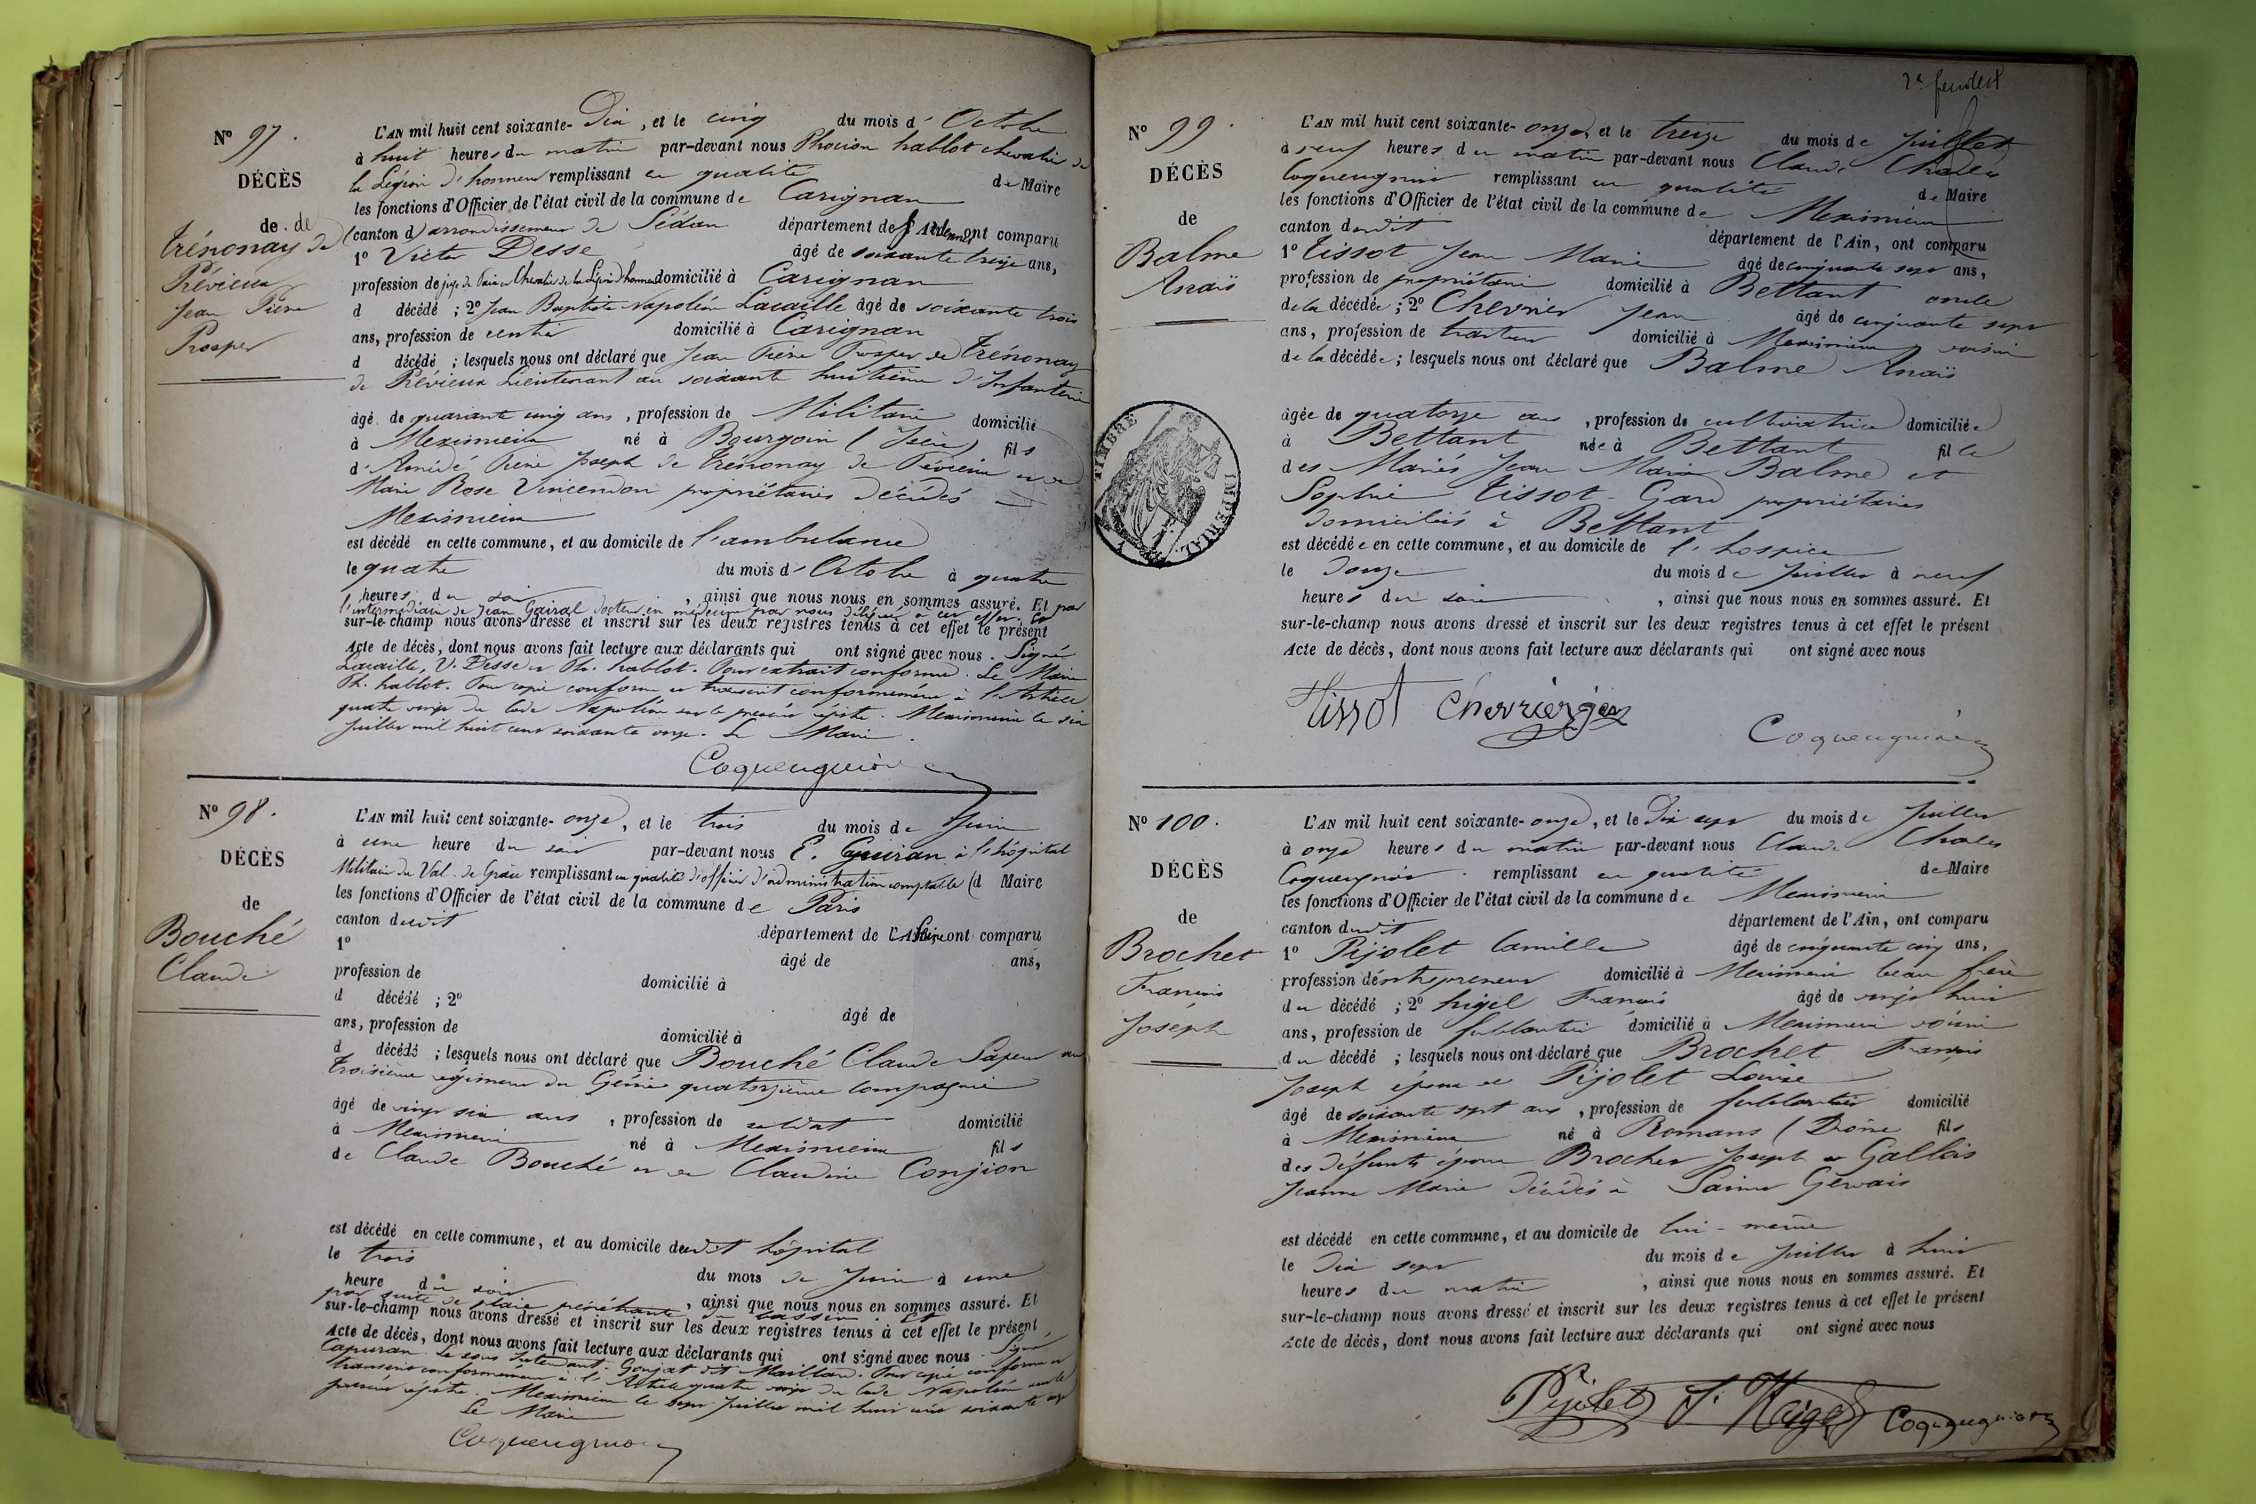 Nº 97.
DÉCÈS
de de
Trénonay de
Prévieux
Jean Pierre
Prosper
L'AN mil huit cent soixante-Dix, et le cinq du mois d'Octobre
à huit heures du matin par-devant nous Phocion hablot chevalier de
la Légion d'honneur remplissant en qualité de Maire
les fonctions d'Officier de l'état civil de la commune de Carignan
(canton d) arrondissement de Sédan département des Ardennes ont comparu
1º Victor Desse âgé de soixante treize ans,
profession de juge de Paix Chevalier de la Légion d'honneur domicilié à Carignan
d décédé ; 2º Jean Baptiste Napoléon Lacaille âgé de soixante trois
ans, profession de rentier domicilié à Carignan
d décédé ; lesquels nous ont déclaré que Jean Pierre Prosper de Trénonay
de Prévieux Lieutenant au soixante huitième d'Infanterie
âgé de quarante cinq ans, profession de Militaire domicilié
à Meximieux né à Bourgoin (Isère) fils
d'Amédé Pierre Joseph de Trénonay de Prévieux et de
Marie Rose Vincendon propriétaires décédés à
Meximieux
est décédé en cette commune, et au domicile de l'ambulance
le quatre du mois d'Octobre à quatre
heures du soir, ainsi que nous nous en sommes assuré. Et par
l'intermédiaire de Jean Gairal docteur en médecine par nous délégué à cet effet. Et
sur-le-champ nous avons dressé et inscrit sur les deux registres tenus à cet effet le présent
Acte de décès, dont nous avons fait lecture aux déclarants qui ont signé avec nous. Signé
Lacaille, V. Desse et Ph. hablot. Pour extrait conforme. Le Maire
Ph. hablot. Pour copie conforme et transcrit conformément à l'Article
quatre vingt du Code Napoléon sur le premier registre. Meximieux le six
Juillet mil huit cent soixante onze. Le Maire.
Nº 98.
DÉCÈS
de
Bouché
Claude
L'AN mil huit cent soixante-onze, et le trois du mois de Juin
à une heure du soir par-devant nous E. à l'hôpital
Militaire du Val-de-Grâce remplissant en qualité d'officier d'administration comptable (d Maire
les fonctions d'Officier de l'état civil de la commune de Paris
canton dudit département de la Seine ont comparu
1º âgé de ans,
profession de domicilié à
d décédé ; 2º âgé de
ans, profession de domicilié à
d décédé ; lesquels nous ont déclaré que Bouché Claude Sapeur au
troisième régiment du Génie quatorzième compagnie
âgé de vingt six ans, profession de soldat domicilié
à Meximieux né à Meximieux fils
de Claude Bouché et de Claudine Conjion
est décédé en cette commune, et au domicile dudit hôpital
le trois du mois de Juin à une
heure du soir, ainsi que nous nous en sommes assuré. Et
par suite de plaie pénétrante du bassin. Et
sur-le-champ nous avons dressé et inscrit sur les deux registres tenus à cet effet le présent
Acte de décès, dont nous avons fait lecture aux déclarants qui ont signé avec nous. Signé
Le sous Intendant. Goujat dit Maillard. Pour copie conforme et
transcrit conformément à l'Article quatre vingt du Code Napoléon sur le
premier registre. Meximieux le sept Juillet mil huit cent soixante onze
Le Maire
2e feuillet
Nº 99.
DÉCÈS
de
Balme
Anaïs
L'AN mil huit cent soixante-onze, et le treize du mois de Juillet
à neuf heures du matin par-devant nous Claude Charles
remplissant en qualité de Maire
les fonctions d'Officier de l'état civil de la commune de Meximieux
canton dudit département de l'Ain, ont comparu
1º Tissot Jean Marie âgé de cinquante sept ans,
profession de propriétaire domicilié à Bettant oncle
de la décédée ; 2º Chevrier Jean âgé de cinquante sept
ans, profession de traiteur domicilié à Meximieux voisin
de la décédée ; lesquels nous ont déclaré que Balme Anaïs
âgée de quatorze ans, profession de cultivatrice domiciliée
à Bettant née à Bettant fille
des Mariés Jean Marie Balme et
Sophie Tissot-Gard propriétaires
domiciliés à Bettant
est décédée en cette commune, et au domicile de l'hospice
le douze du mois de Juillet à neuf
heures du soir, ainsi que nous nous en sommes assuré. Et
sur-le-champ nous avons dressé et inscrit sur les deux registres tenus à cet effet le présent
Acte de décès, dont nous avons fait lecture aux déclarants qui ont signé avec nous
Tissot Chevrier jean
TIMBRE IMPÉRIAL
Nº 100.
DÉCÈS
de
Brochet
François
Joseph
L'AN mil huit cent soixante-onze, et le Dix sept du mois de Juillet
à onze heures du matin par-devant nous Claude Charles
remplissant en qualité de Maire
les fonctions d'Officier de l'état civil de la commune de Meximieux
canton dudit département de l'Ain, ont comparu
1º Pijolet Camille âgé de cinquante cinq ans,
profession d'entrepreneur domicilié à Meximieux beau frère
du décédé ; 2º higel François âgé de vingt huit
ans, profession de ferblantier domicilié à Meximieux voisin
du décédé ; lesquels nous ont déclaré que Brochet François
Joseph époux de Pijolet Louise
âgé de soixante sept ans, profession de ferblantier domicilié
à Meximieux né à Romans (Drôme fils
des défunts époux Brochet Joseph et Gallois
Jeanne Marie décédés à Saint Gervais
est décédé en cette commune, et au domicile de lui-même
le Dix sept du mois de Juillet à huit
heures du matin, ainsi que nous nous en sommes assuré. Et
sur-le-champ nous avons dressé et inscrit sur les deux registres tenus à cet effet le présent
Acte de décès, dont nous avons fait lecture aux déclarants qui ont signé avec nous
Pijolet